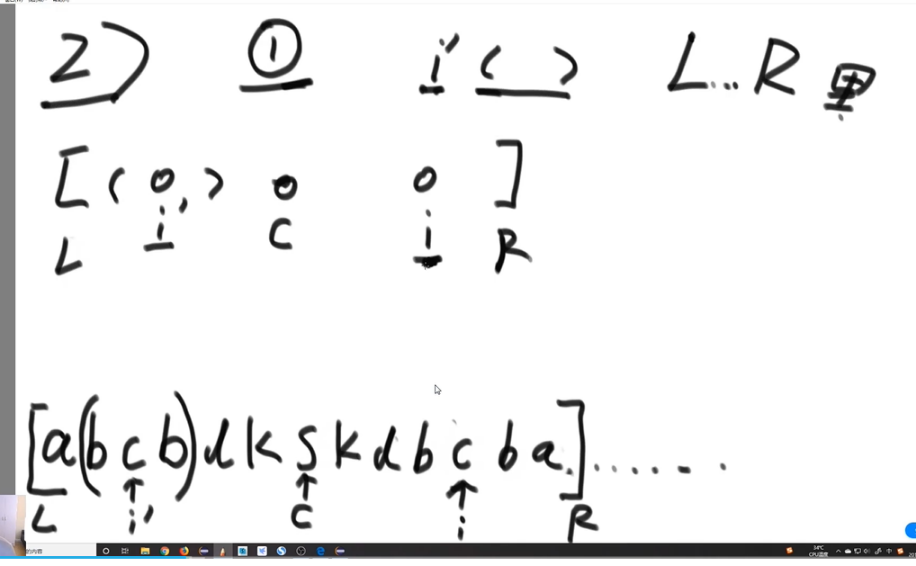 2) ① i' ( ) L...R 里
[ ( o ) o o ]
L i' C i R
[a(bcb)dkskdbcba]......
L i' C i R
的内容
34℃
CPU温度
中